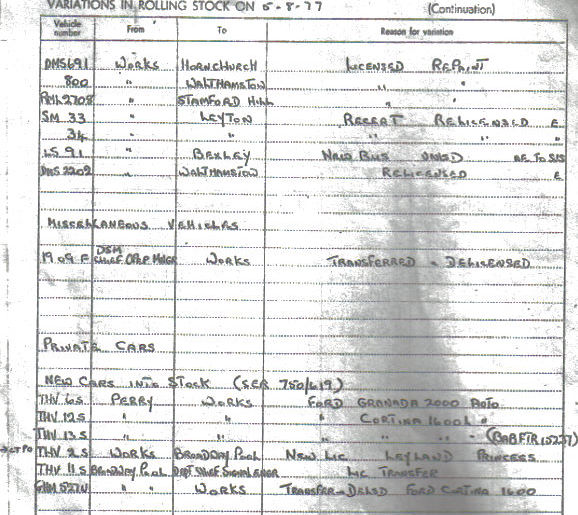 VARIATIONS IN ROLLING STOCK ON 5-8-77 (Continuation)
Vehicle number From To Reason for variation
DMS691 WORKS HORNCHURCH LICENSED REPAINT
800 " WALTHAMSTOW " "
RML2708 " STAMFORD HILL " "
SM 33 " LEYTON RECERT RELICENSED E
34 " " " " "
LS 91 " BEXLEY NEW BUS UNSD
DMS 2202 " WALTHAMSTOW RELICENSED E
MISCELLANEOUS VEHICLES
1909 F WORKS TRANSFERRED - DELICENSED
PRIVATE CARS
NEW CARS INTO STOCK (SER 750/619)
THV 6S PERRY WORKS FORD GRANADA 2000 AUTO
THV 12S " " " CORTINA 1600L "
THV 13S " " " " " " (BABFTR 15237)
THV 2S WORKS BROADWAY POOL NEW LIC LEYLAND PRINCESS
THV 11S BROADWAY POOL LIC TRANSFER
" " WORKS TRANSFER - DELSD FORD CORTINA 1600